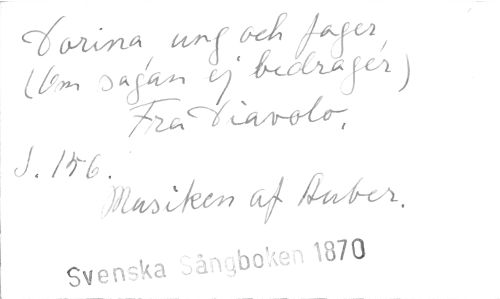 Dorina ung och fager
(Om sagan ej bedrager)
Fra Diavolo.
S. 156.
Musiken af Auber.
Svenska Sångboken 1870